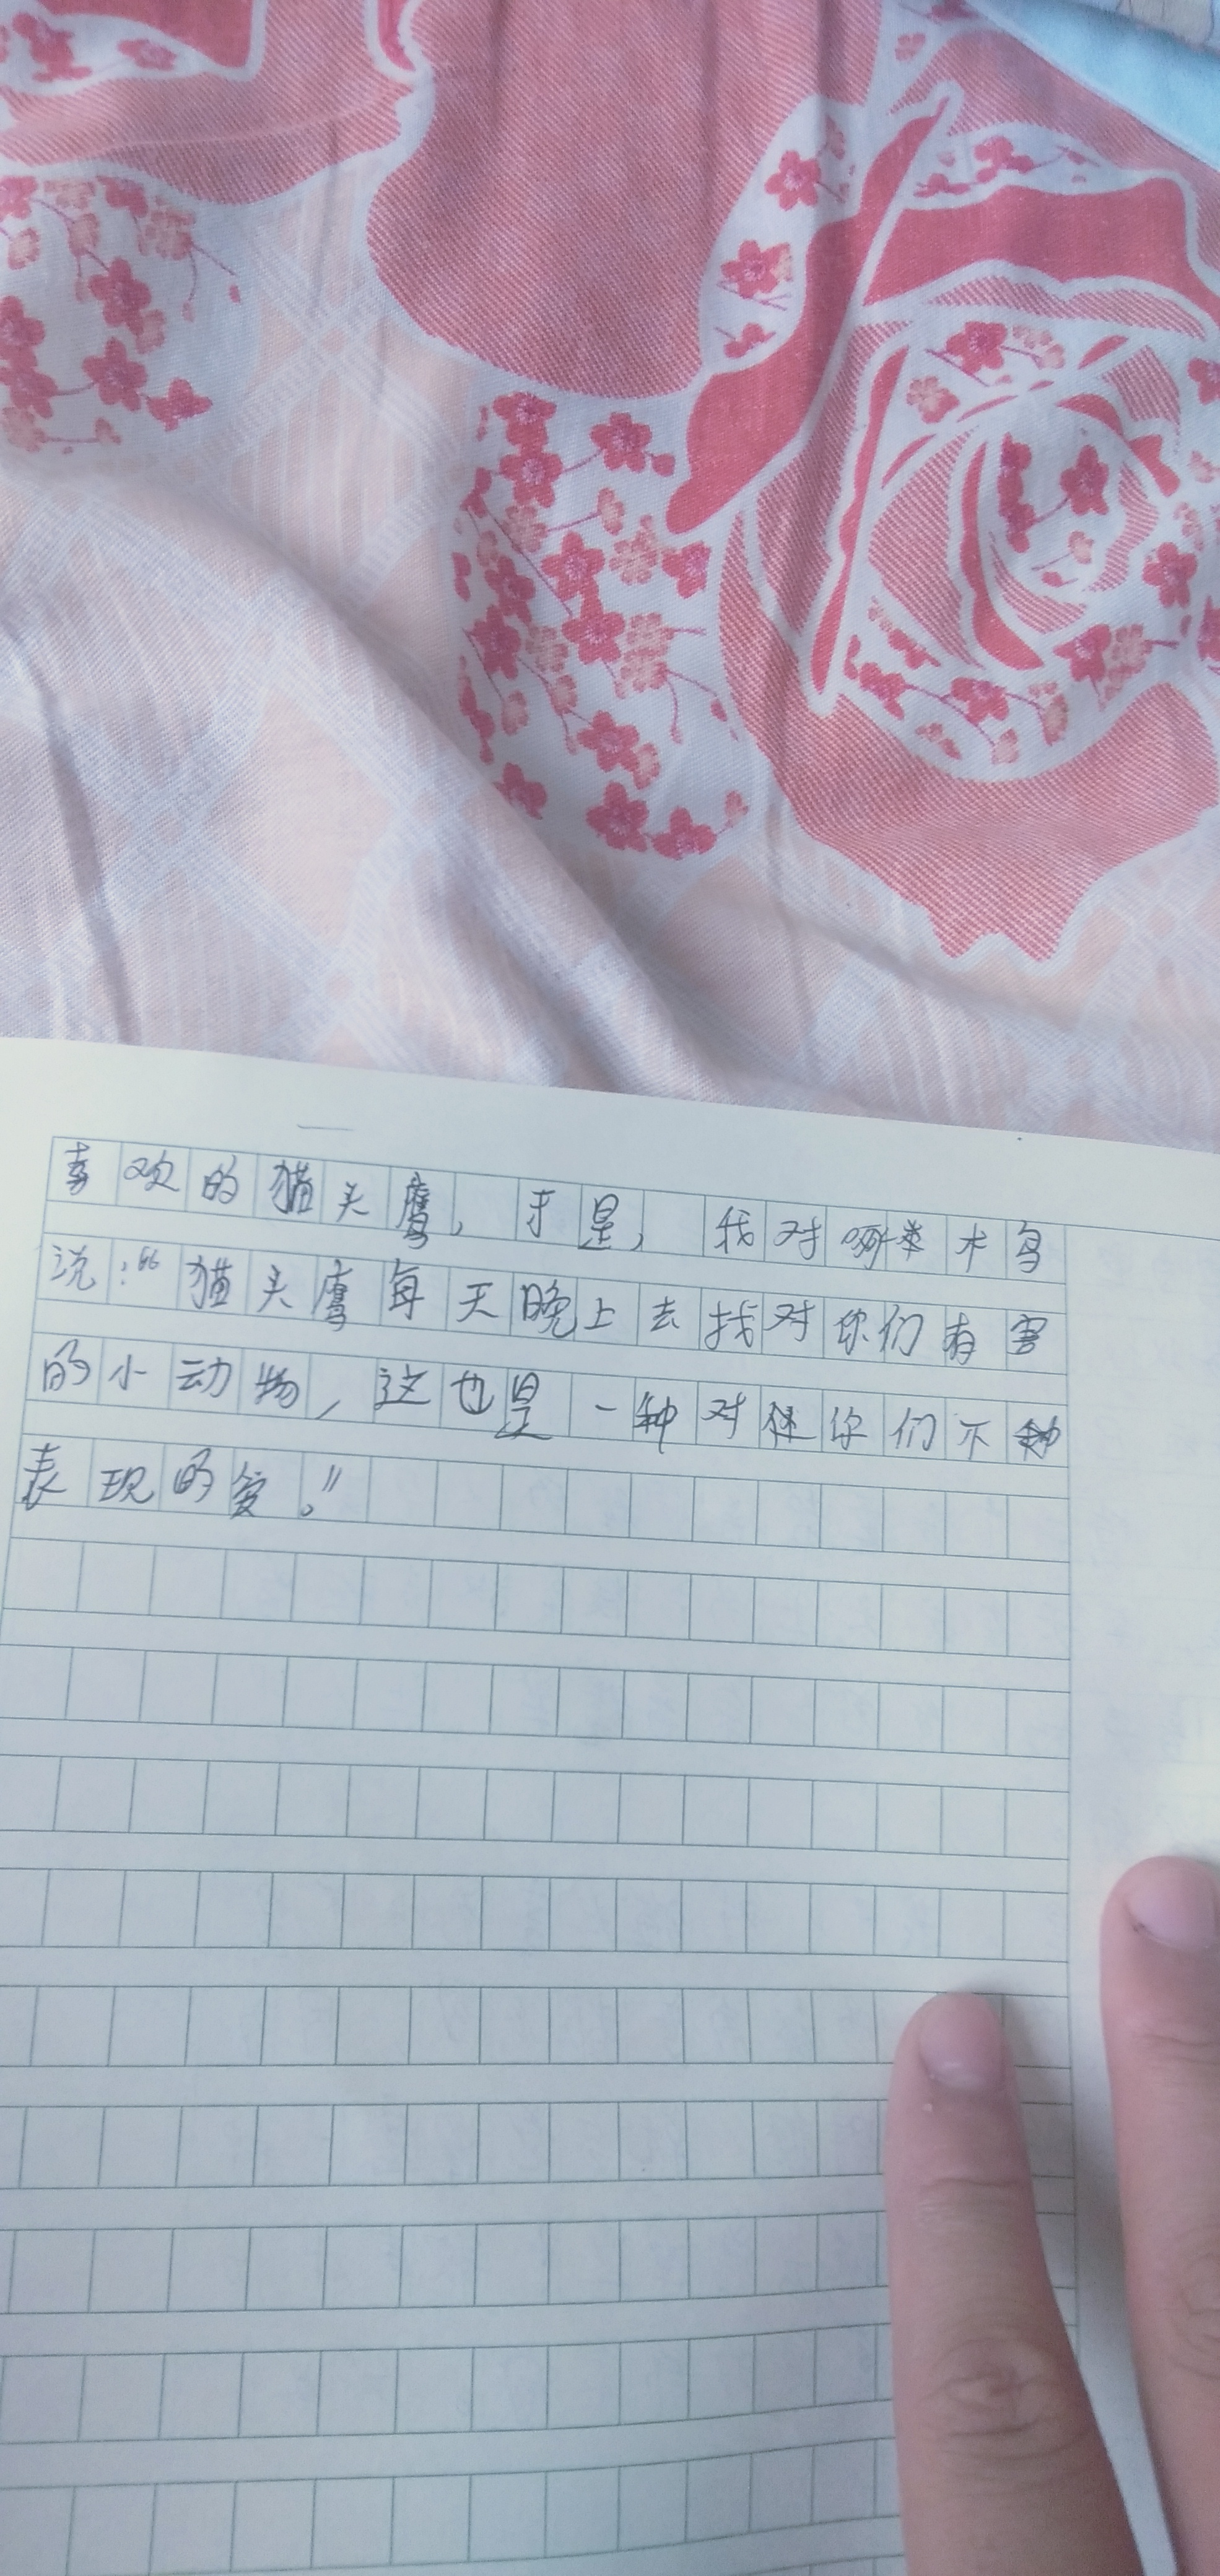 喜欢的猫头鹰，于是，我对啄木鸟
说：“猫头鹰每天晚上去找对你们有害
的小动物，这也是一种对你们不
表现的爱。”